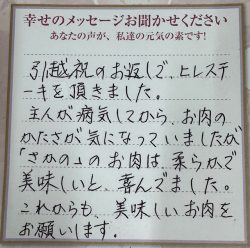 幸せのメッセージお聞かせください
あなたの声が、私達の元気の素です!
引越祝のお返しで、ヒレステ
ーキを頂きました。
主人が病気してから、お肉の
かたさが気になっていましたが
「さかの」のお肉は、柔らかで
美味しいと、喜んでました。
これからも、美味しいお肉を
お願いします。